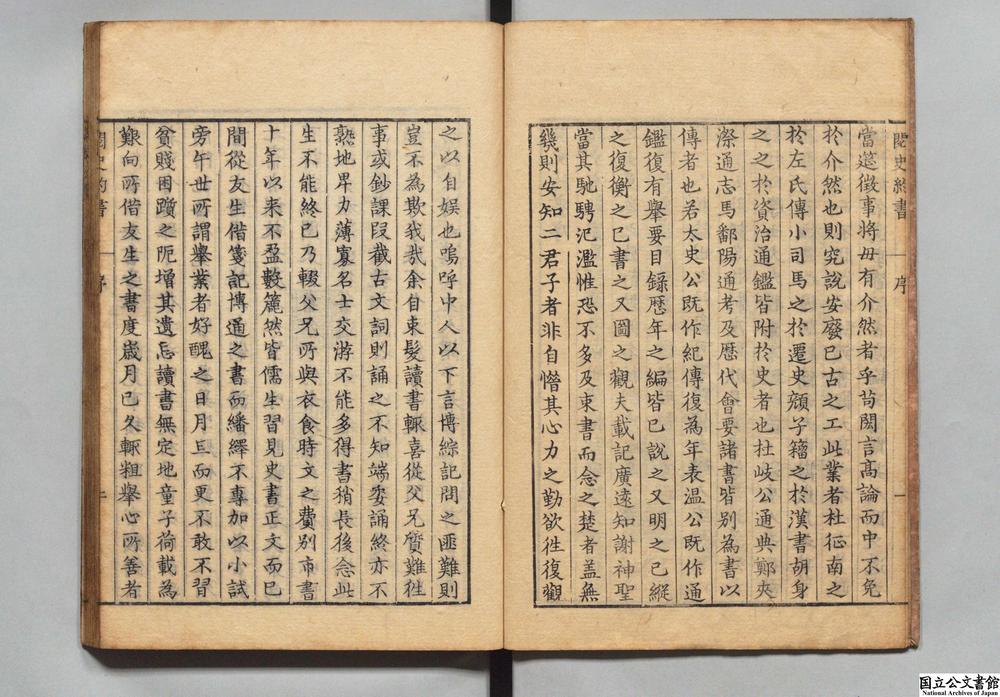 閱史約書 一 序 一
當遊徵事將毋有介然者乎苟闊言高論而中不免
於介然也則究說安廢已古之工此業者杜征南之
於左氏傳小司馬之於遷史顔子籀之於漢書胡身
之之於資治通鑑皆附於史者也杜岐公通典鄭夾
漈通志馬鄱陽通考及歷代會要諸書皆别為書以
傳者也若太史公既作紀傳復為年表温公既作通
鑑復有舉要目錄歷年之編皆已說之又明之已縱
之復衡之已書之又圖之觀夫載記廣遠知謝神聖
當其馳騁氾濫惟恐不多及束書而念之楚者盖無
幾則安知二君子者非自憯其心力之勤欲徃復觀
之以自娱也嗚呼中人以下言博綜記問之匪難則
豈不為欺我哉余自束髮讀書輙喜從父兄質難徃
事或鈔課段截古文詞則誦之不知端委誦終亦不
熟地卑力薄寡名士交游不能多得書稍長後念此
生不能終已乃輟父兄所與衣食時文之費别市書
十年以来不盈數簏然皆儒生習見史書正文而已
間從友生借箋記博通之書而繙繹不專加以小試
旁午世所謂舉業者好醜之日月三而更不敢不習
貧賤困躓之阨增其遺忘讀書無定地童子荷載為
艱向所借友生之書度歲月已久輙粗舉心所善者
閱史約書 一 序 二
国立公文書館
National Archives of Japan